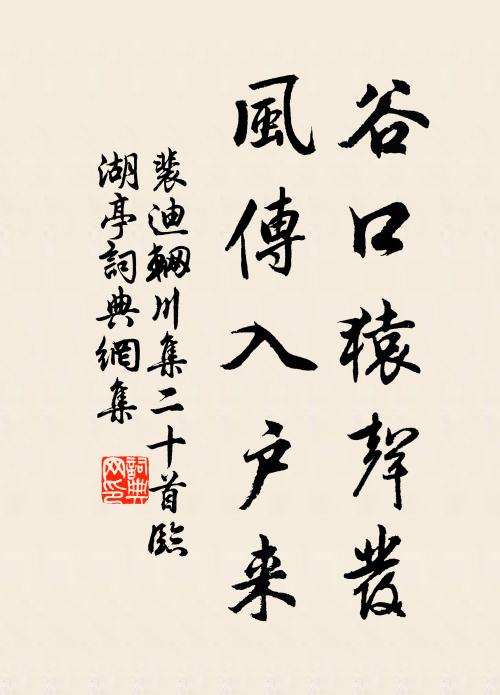 谷口猿聲發
風傳入戶来
裴迪輞川集二十首臨
湖亭詞典網集
詞典
网印